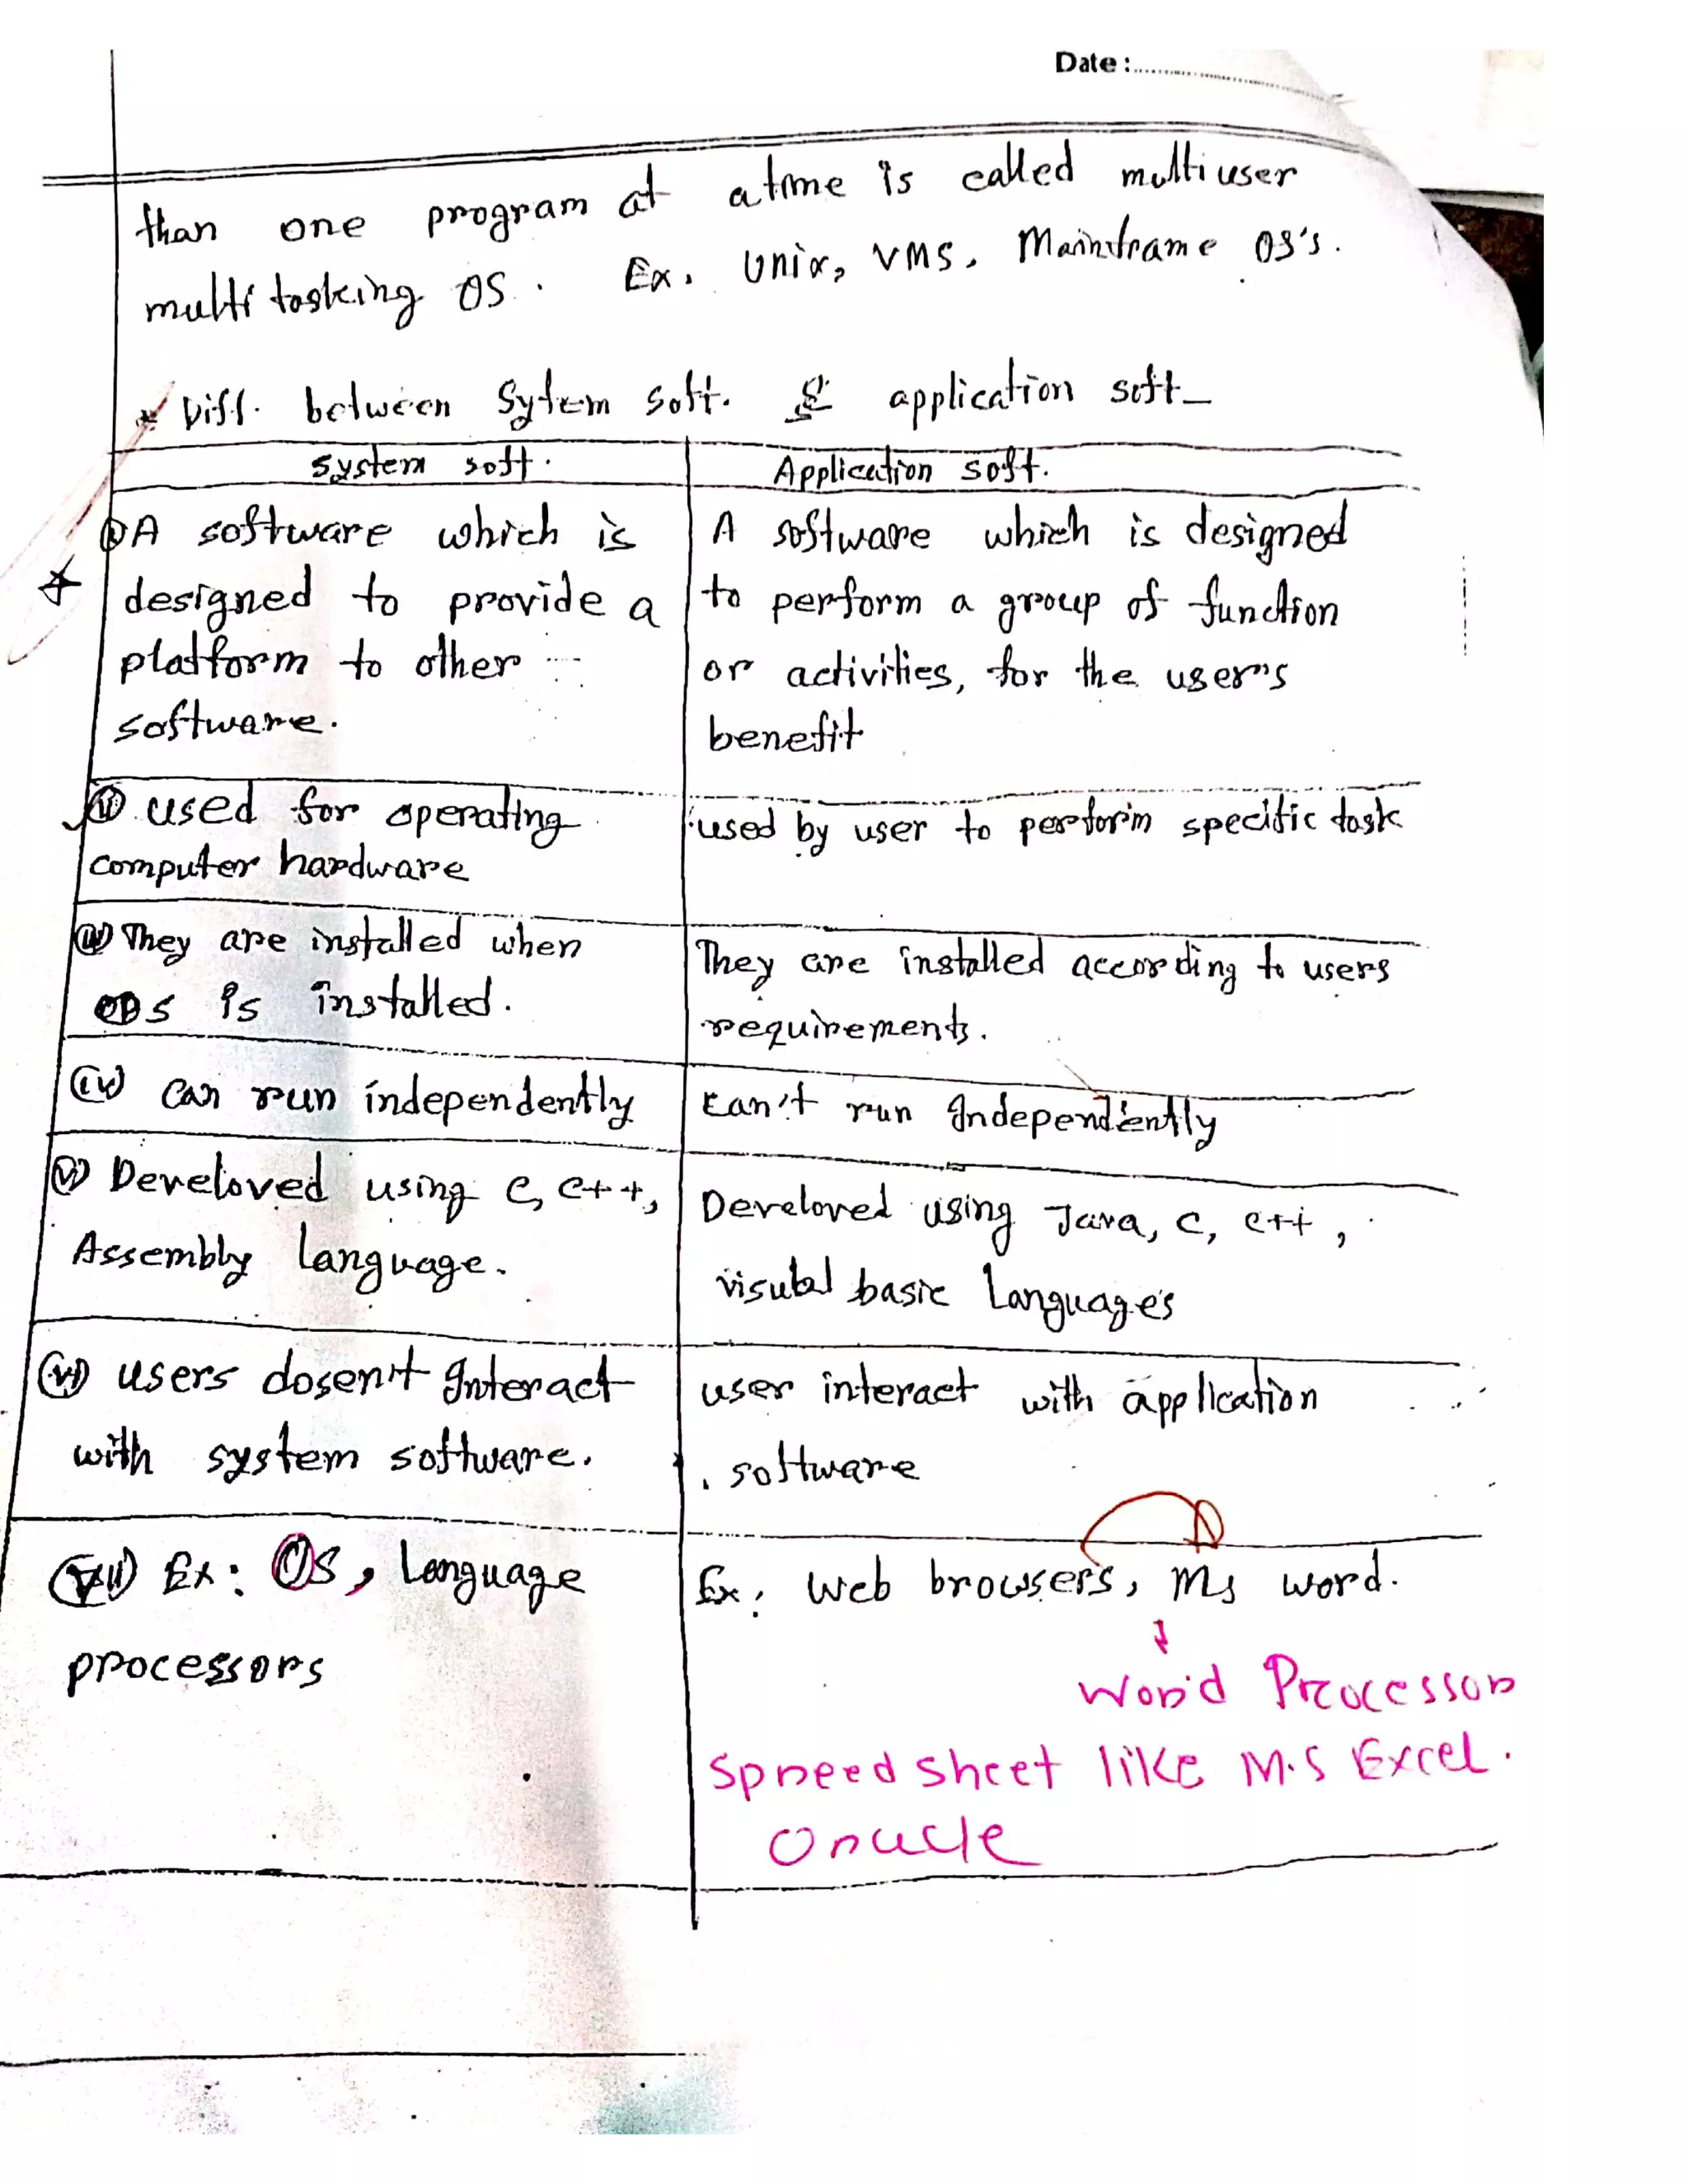 Date :
than one program at a time is called multi user
multi tasking OS. Ex. Unix, VMS, Mainframe OS's.
* Diff. between Sytem soft. & application soft_
System soft.
Application soft.
i) A software which is
designed to provide a
platform to other
software.
A software which is designed
to perform a group of function
or activities, for the user's
benefit
ii) used for operating
computer hardware
used by user to perform specific task
iii) They are installed when
OS is installed.
They are installed according to users
requirements.
iv) Can run independently
can't run Independently
v) Develoved using C, C++,
Assembly language.
Develoved using Java, C, C++,
visubal basic Languages
vi) users dosen't Interact
with system software.
user interact with application
software
vii) Ex: OS, Language
processors
Ex: Web browsers, Ms word.
Word Processor
Spreed sheet like M.S Excel.
Oracle